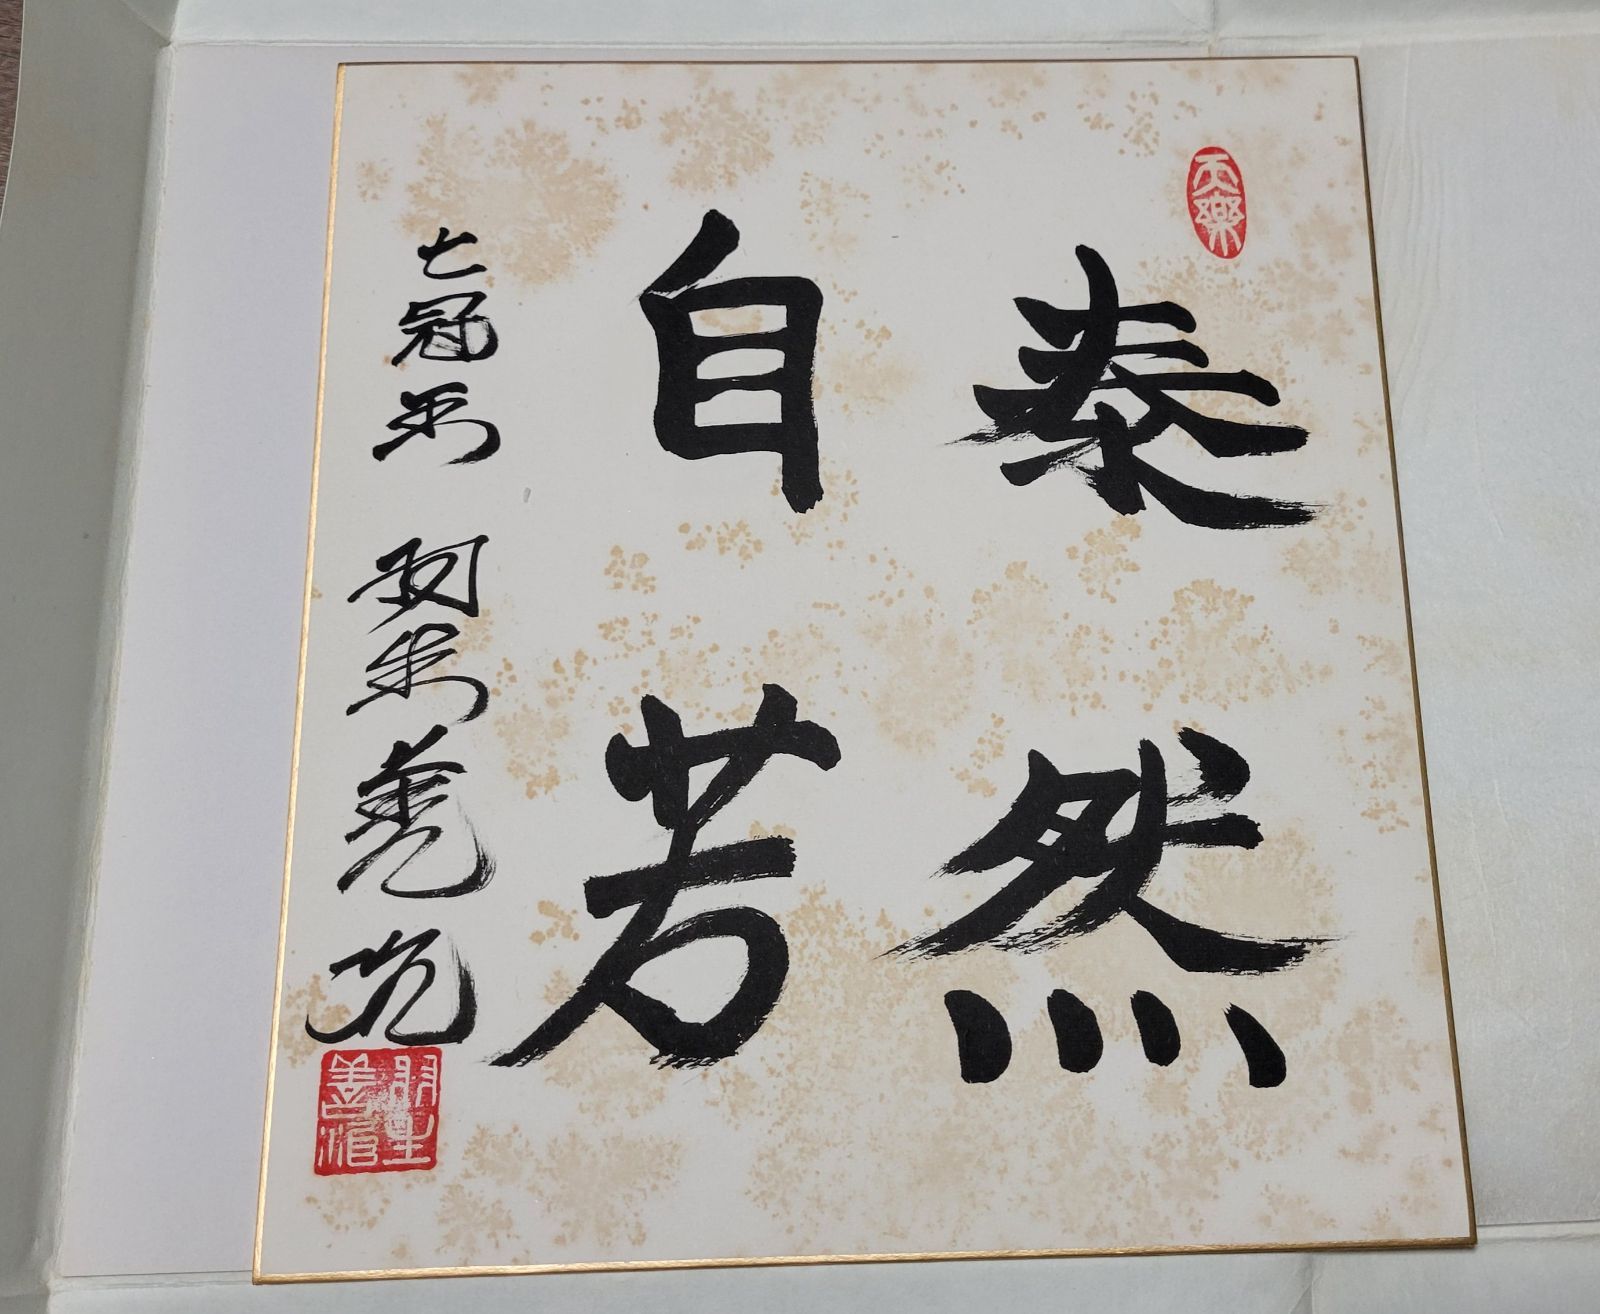 泰然
自若
七冠王 羽生善治
天樂
羽生
善治